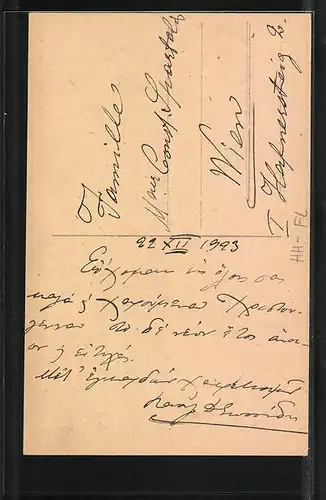 Famille
Mauz Const. Spartalis
Wien
I Hafnersteig 2.
HH-FL
22 XII 1923
Εὔχομαι εἰς ὅλους σας
καλά & χαρούμενα Χριστού-
γεννα τὸ δὲ νέον ἔτος αἴσι-
ον & εὐτυχές.
Μετ' ἐγκαρδίων χαιρετισμῶν